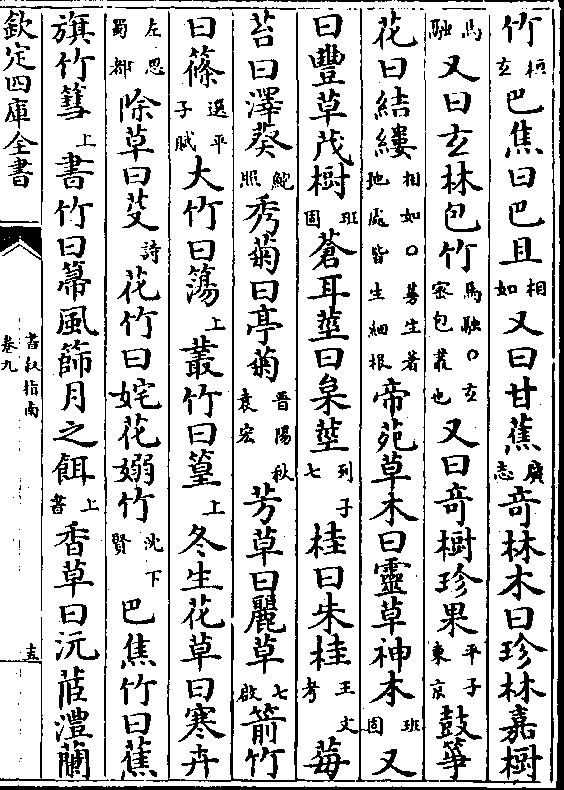 竹桓玄巴焦曰巴且相如又曰甘蕉廣志竒林木曰珍林嘉樹
馬融又曰玄林包竹馬融〇玄密包叢也又曰竒樹珍果平子東京鼓箏
花曰結縷相如〇蔓生著地處皆生細根帝苑草木曰靈草神木班固又
曰豐草茂樹班固蒼耳莖曰枲莖列子七桂曰朱桂王文考莓
苔曰澤葵鮑照秀菊曰亭菊晉陽秋袁宏芳草曰麗草七啟箭竹
曰篠選平子賦大竹曰簜上叢竹曰篁上冬生花草曰寒卉
左思蜀都除草曰芟詩花竹曰姹花嫋竹沈下賢巴焦竹曰蕉
旗竹篲上書竹曰箒風篩月之餌上書香草曰沅茝澧蘭
欽定四庫全書
書叙指南
卷九